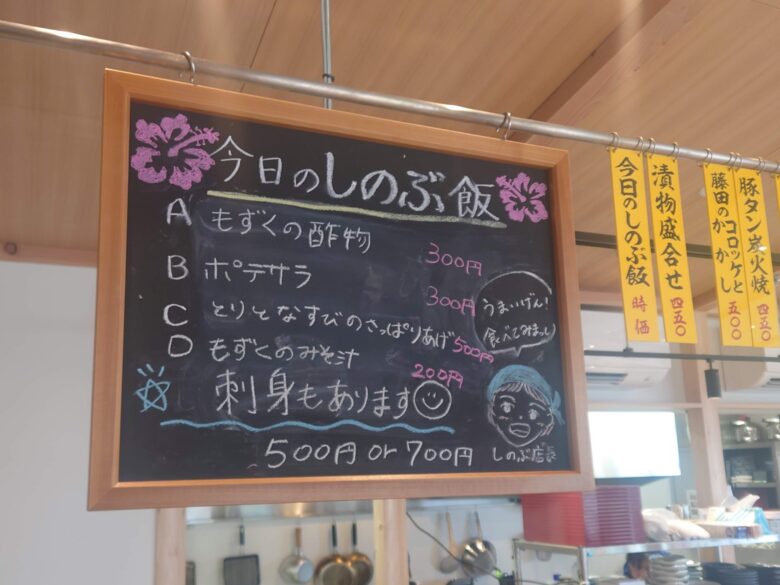 今日のしのぶ飯
A もずくの酢物 300円
B ポテサラ 300円
C とりとなすびのさっぱりあげ 500円
D もずくのみそ汁 200円
刺身もあります
500円 or 700円
うまいげん!
食べてみまっし
しのぶ店長
今日のしのぶ飯 時価
漬物盛合せ 四五〇
藤田のかコロッケとかし 五〇〇
豚タン炭火焼 四五〇